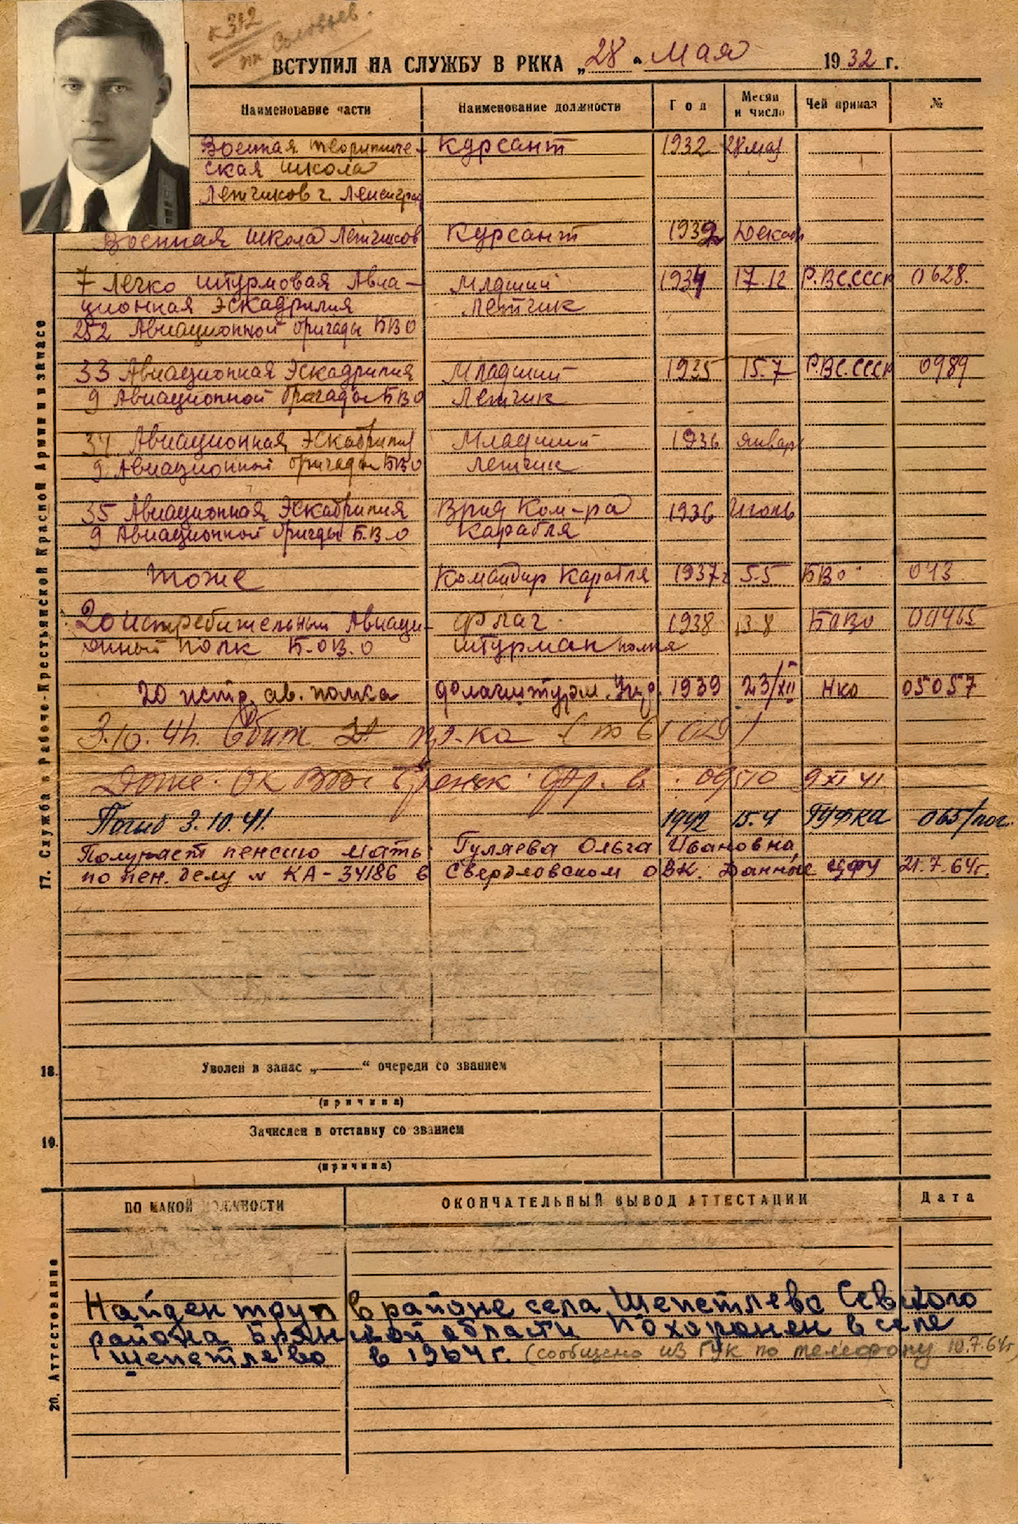 к 312
пп Соловьев.
ВСТУПИЛ НА СЛУЖБУ В РККА „28" Мая 1932 г.
Наименование части Наименование должности Год Месяц и число Чей приказ №
Военная теоритиче- Курсант 1932 28 мая
ская школа
Летчиков г. Ленинград
Военная школа Летчиков Курсант 1932 Декаб
7 Легко штурмовая Авиа- Младший 1934 17.12 Р.ВС.СССР 0628.
ционная Эскадрилия Летчик
252 Авиационной бригады БВО
33 Авиационная Эскадрилия Младший 1935 15.7 РВС.СССР 0989
9 Авиационной бригады БВО Летчик
34 Авиационная Эскадрилия Младший 1936 январ
9 Авиационной бригады БВО летчик
35 Авиационная Эскадрилия Врид Ком-ра 1936 Июль
9 Авиационной бригады Б.В.О Карабля
тоже Командир Карабля 1937г 5.5 БВО 043
20 истребительный Авиаци- Флаг. 1938 13.8 БОВО 00465
онный полк Б.О.В.О штурман полка
20 истр. ав. полка флагштурм. 1939 23/XII НКО 05057
3.10.41. Сбит
Брянск. фр. 09510 9 XI 41.
Погиб 3.10.41. 1942 15.4 ГУФКА 065/пог.
Получает пенсию Мать Гуляева Ольга Ивановна
по пен. делу № КА-34186 в Свердловском ОВК. Данные ЦФУ 21.7.64г.
17. Служба в Рабоче-Крестьянской Красной Армии и в запасе
18. Уволен в запас „ " очереди со званием
(причина)
19. Зачислен в отставку со званием
(причина)
ПО КАКОЙ ДОЛЖНОСТИ ОКОНЧАТЕЛЬНЫЙ ВЫВОД АТТЕСТАЦИИ Дата
20. Аттестование
Найден труп в районе села Щепетлево Севского
района Брянской области похоронен в селе
Щепетлево в 1964г. (сообщено из ГУК по телефону 10.7.64г)